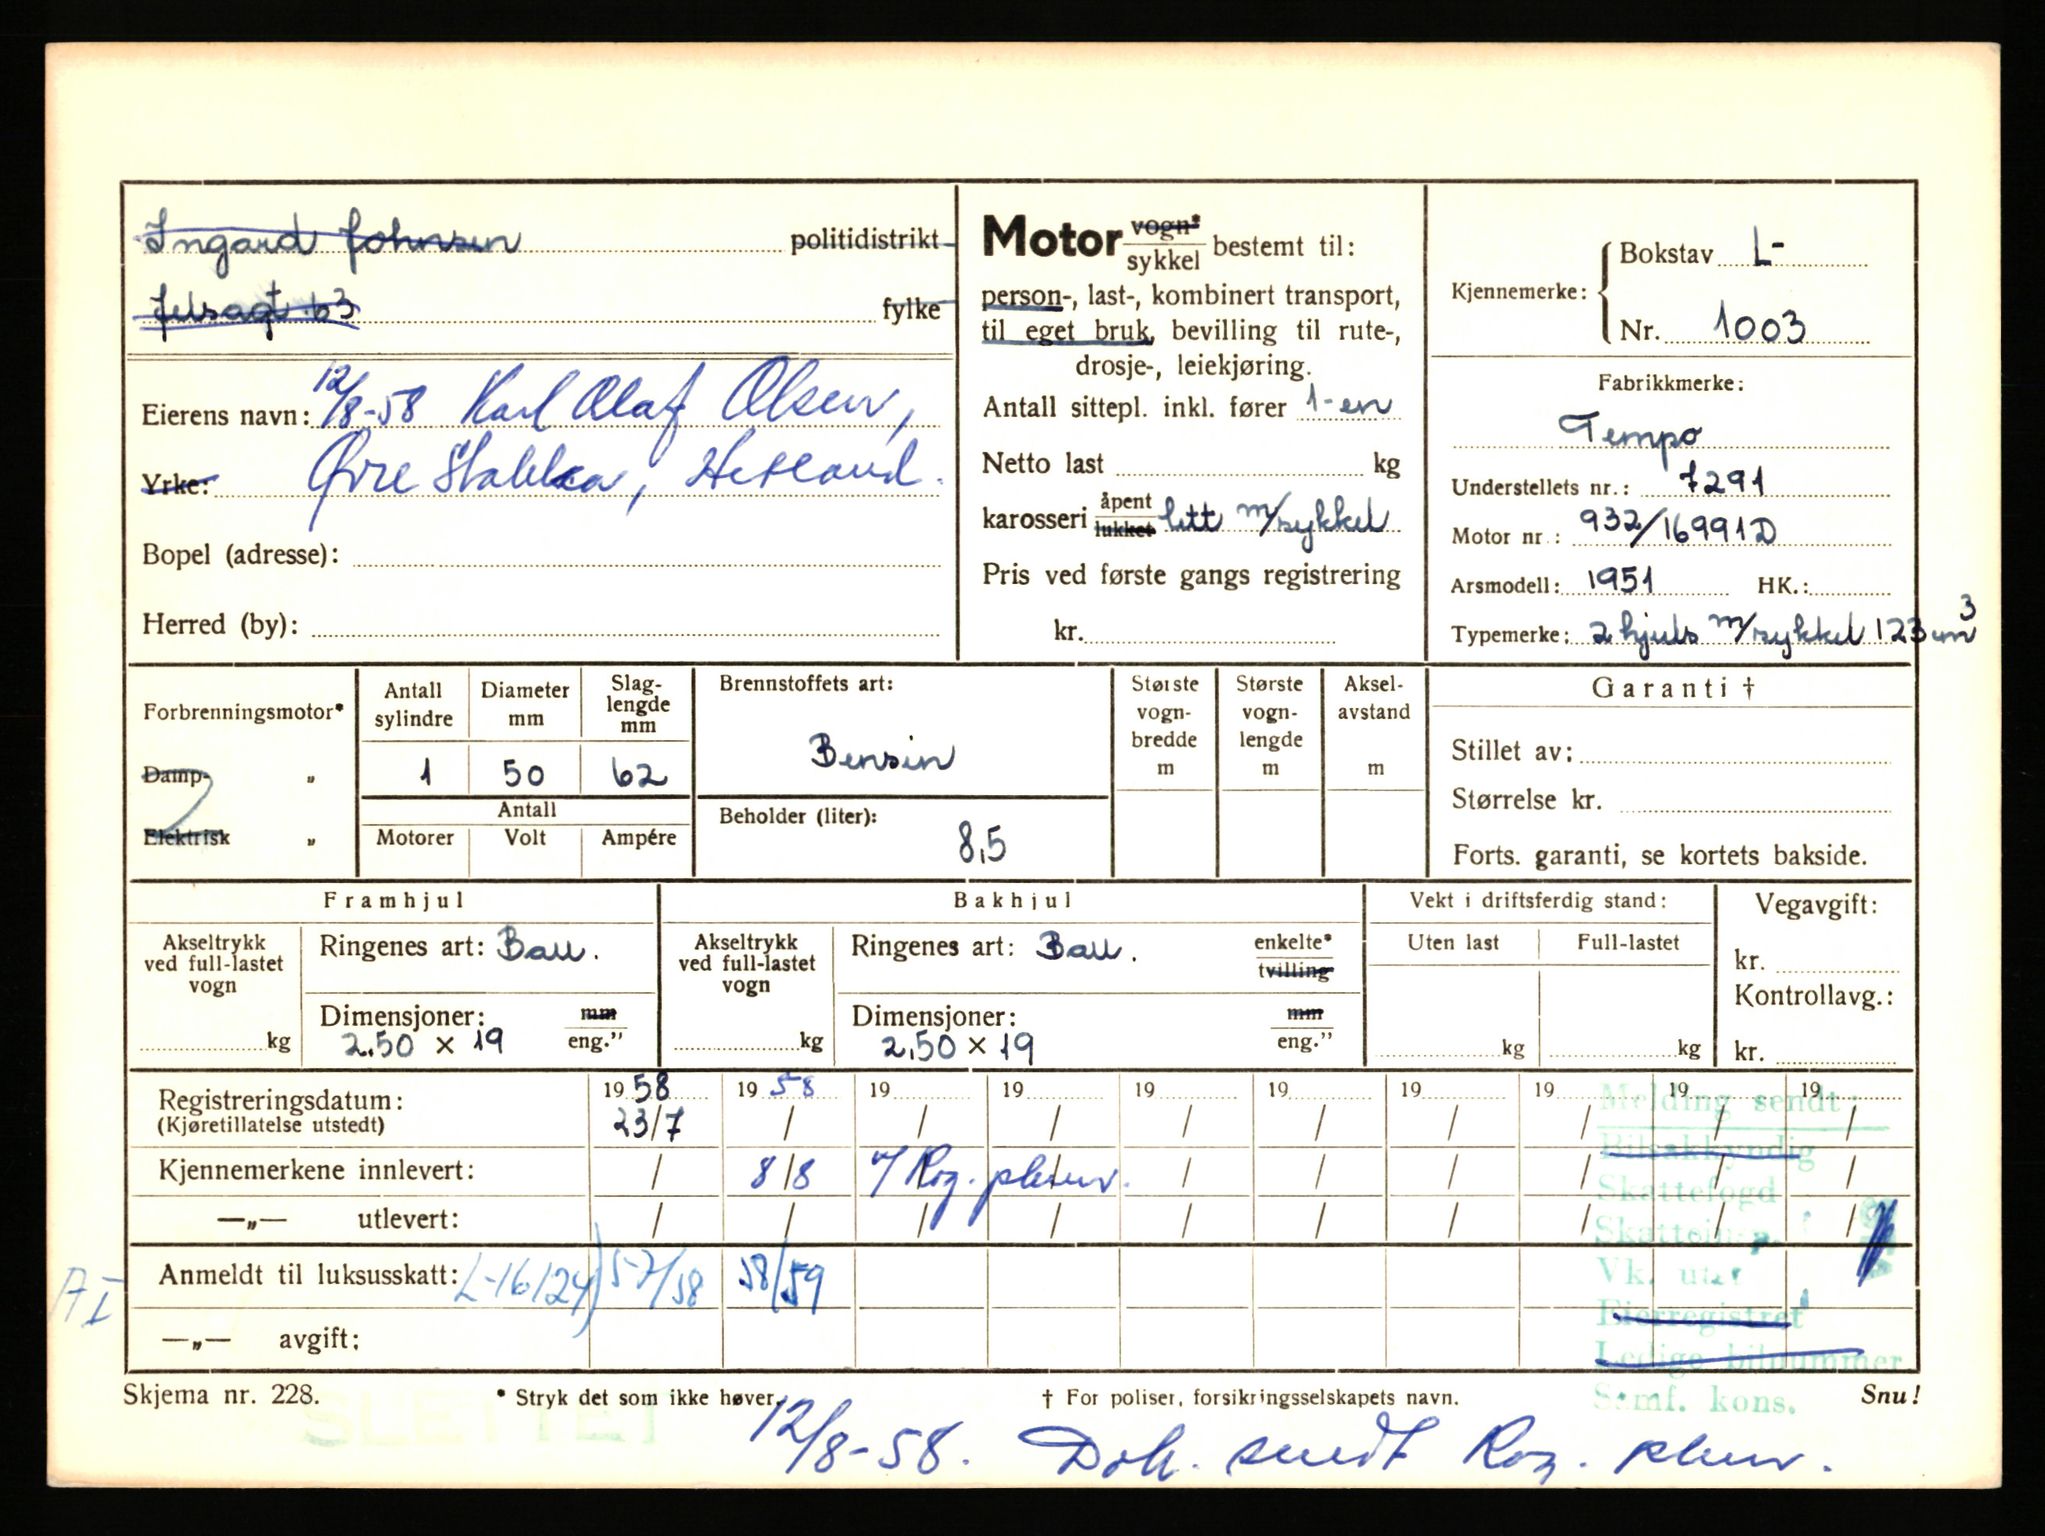 Ingard Johnsen politidistrikt
fylke
Eierens navn: 12/8-58 Karl Olaf Olsen,
Yrke: Øvre Stokka, Hetland.
Bopel (adresse):
Herred (by):
Motor vogn* sykkel bestemt til:
person-, last-, kombinert transport,
til eget bruk, bevilling til rute-,
drosje-, leiekjøring.
Antall sittepl. inkl. fører 1-en
Netto last kg
karosseri åpent lukket lett m/sykkel
Pris ved første gangs registrering
kr.
Kjennemerke: Bokstav L-
Nr. 1003
Fabrikkmerke:
Tempo
Understellets nr.: 7291
Motor nr.: 932/16991D
Arsmodell: 1951 HK.:
Typemerke: 2 hjuls m/sykkel 123 cm3
Forbrenningsmotor*
Damp- „
Elektrisk „
Antall sylindre 1
Diameter mm 50
Slag-lengde mm 62
Antall
Motorer Volt Ampére
Brennstoffets art:
Bensin
Beholder (liter):
8,5
Største vogn-bredde m
Største vogn-lengde m
Aksel-avstand m
Garanti †
Stillet av:
Størrelse kr.
Forts. garanti, se kortets bakside.
Framhjul
Akseltrykk ved full-lastet vogn
kg
Ringenes art: Ball.
Dimensjoner: mm eng.”
2.50 x 19
Bakhjul
Akseltrykk ved full-lastet vogn
kg
Ringenes art: Ball. enkelte* tvilling
Dimensjoner: mm eng.”
2.50 x 19
Vekt i driftsferdig stand:
Uten last Full-lastet
kg kg
Vegavgift:
kr.
Kontrollavg.:
kr.
Registreringsdatum: 1958 1958 19 19 19 19 19 19 19 19
(Kjøretillatelse utstedt) 23/7 / / / / / / / / /
Kjennemerkene innlevert: / 8/8 Rog. / / / / / /
—„— utlevert: / / / / / / / / / /
Anmeldt til luksusskatt: L-16124) 57/58 58/59
AI
—„— avgift:
Melding sendt:
Bilsakkyndig
Skattefogd
Vk. utst
Eierregistret
Ledige bilnummer
Samf. kons.
Skjema nr. 228. * Stryk det som ikke høver. † For poliser, forsikringsselskapets navn. Snu!
SLETTET
12/8-58. Dok. sendt Rog.